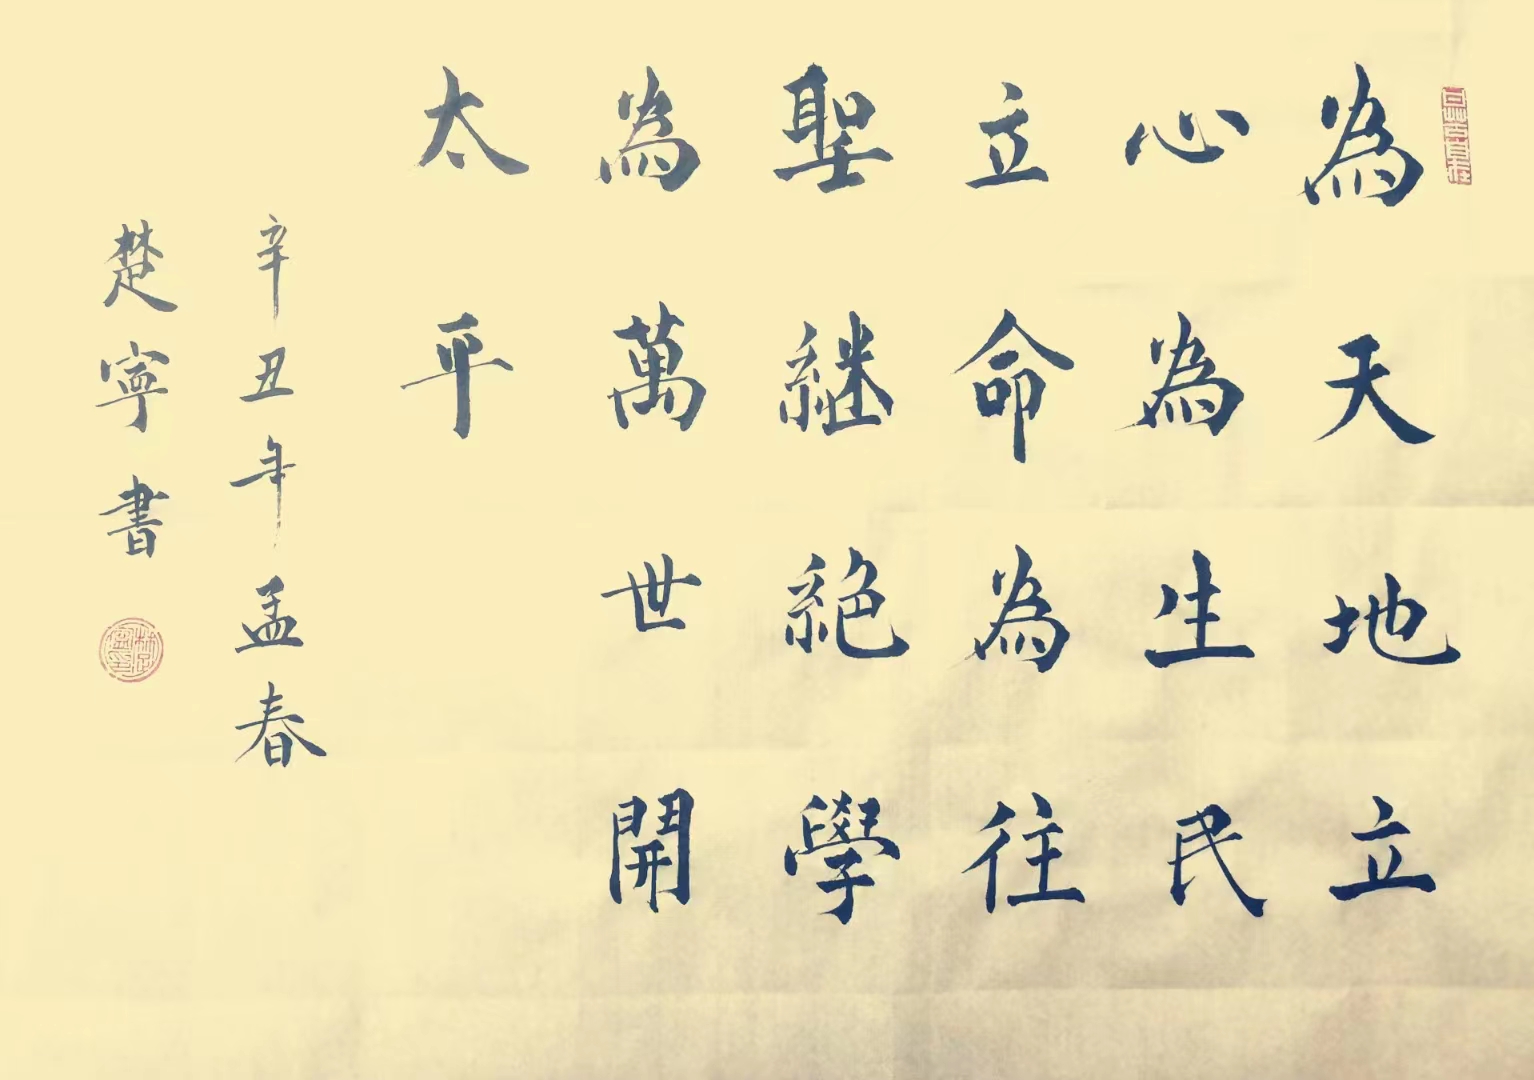 為天地立
心為生民
立命為往
聖継絕學
為萬世開
太平
辛丑年孟春
楚寧書